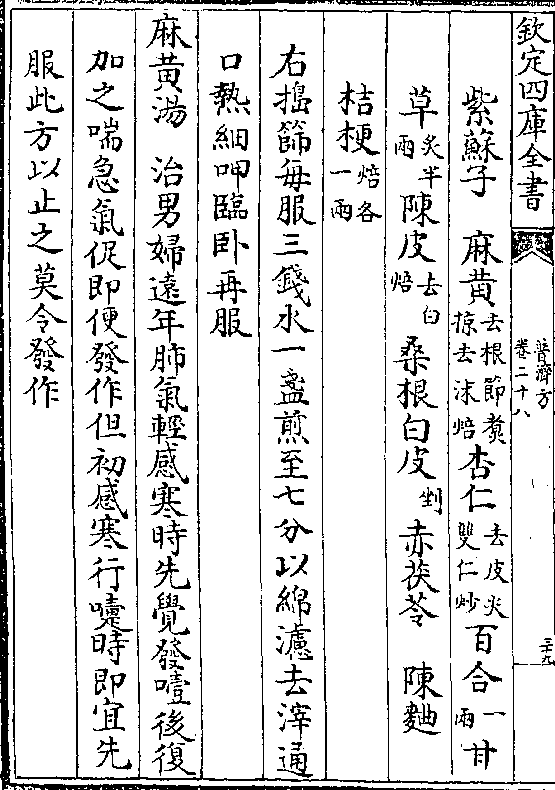 欽定四庫全書
普濟方
卷二十八
三十九
紫蘇子　麻黃去根節煮掠去沫焙杏仁去皮尖雙仁炒百合一兩甘
草炙半兩陳皮去白焙桑根白皮剉赤茯苓　陳麯
桔梗焙各一兩
右搗篩每服三錢水一盞煎至七分以綿濾去滓通
口熱細呷臨卧再服
麻黃湯　治男婦遠年肺氣輕感寒時先覺發嚏後復
加之喘急氣促即便發作但初感寒行嚏時即宜先
服此方以止之莫令發作